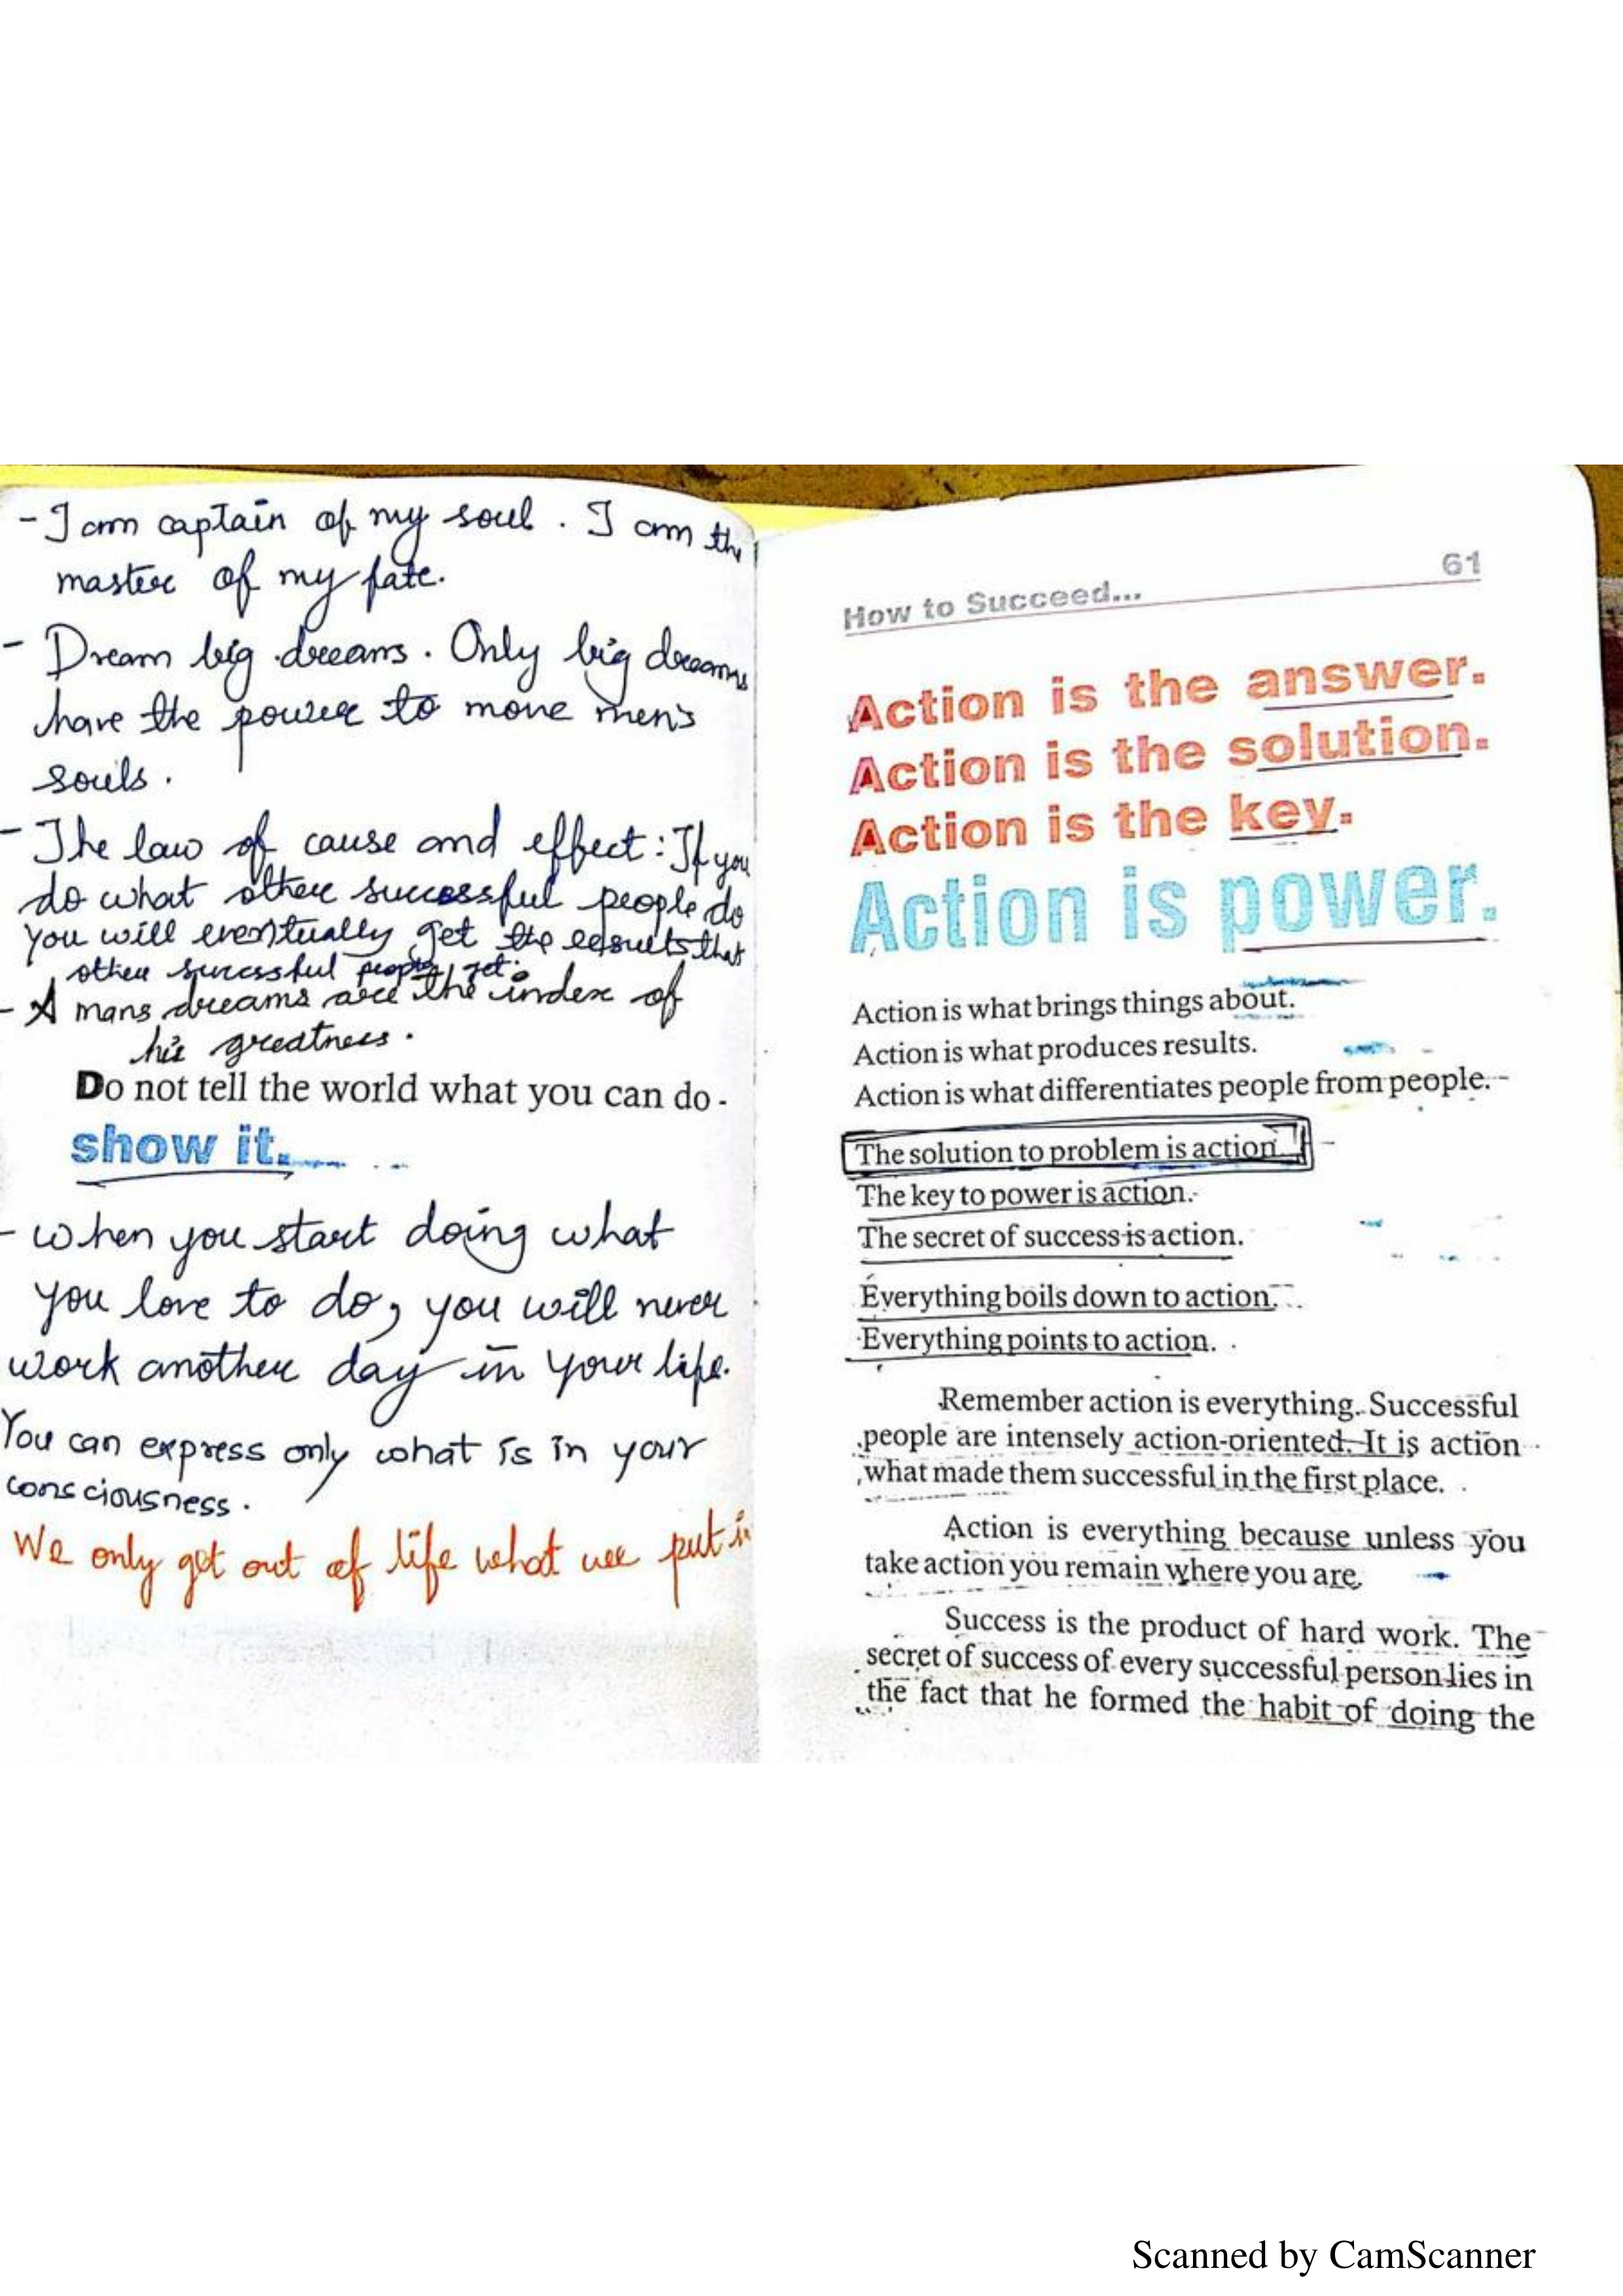 - I am captain of my soul. I am the
master of my fate.
- Dream big dreams. Only big dreams
have the power to move men's
souls.
- The law of cause and effect: If you
do what other successful people do
you will eventually get the results that
other successful people get.
- A mans dreams are the index of
his greatness.
Do not tell the world what you can do -
show it.
- When you start doing what
you love to do, you will never
work another day in your life.
You can express only what is in your
consciousness.
We only get out of life what we put in
How to Succeed... 61
Action is the answer.
Action is the solution.
Action is the key.
Action is power.
Action is what brings things about.
Action is what produces results.
Action is what differentiates people from people.
The solution to problem is action.
The key to power is action.
The secret of success is action.
Everything boils down to action.
Everything points to action.
Remember action is everything. Successful
people are intensely action-oriented. It is action
what made them successful in the first place.
Action is everything because unless you
take action you remain where you are.
Success is the product of hard work. The
secret of success of every successful person lies in
the fact that he formed the habit of doing the
Scanned by CamScanner